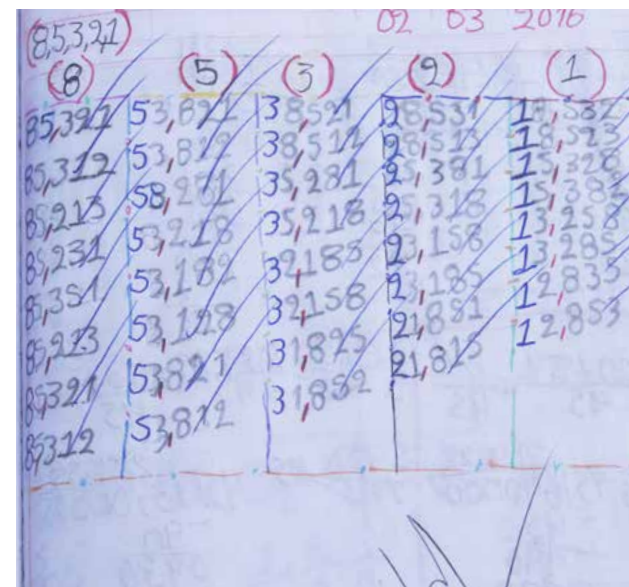 (8,5,3,2,1) 02 03 2016
(8) (5) (3) (2) (1)
85,321 53,821 38,521 28,531 18,532
85,312 53,812 38,512 28,513 18,523
85,213 58,281 35,281 25,381 15,328
85,231 53,218 35,218 25,318 15,382
85,351 53,182 32,185 23,158 13,258
85,213 53,128 32,158 23,185 13,285
85,321 53,821 31,825 21,851 12,835
85,312 53,812 31,852 21,815 12,853